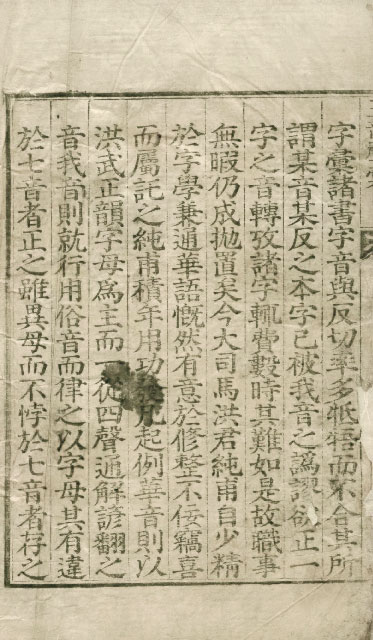 字彙諸書字音與反切率多牴牾而不合其所
謂某音某反之本字已被我音之譌謬欲正一
字之音轉攷諸字輒費數時其難如是故職事
無暇仍成拋置矣今大司馬洪君純甫自少精
於字學兼通華語慨然有意於修整不佞竊喜
而屬託之純甫積年用功發凡起例華音則以
洪武正韻字母爲主而一從四聲通解諺翻之
音我音則就行用俗音而律之以字母其有違
於七音者正之雖異母而不悖於七音者存之